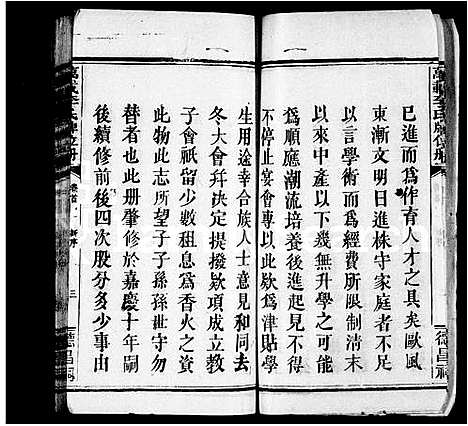 已進而為作育人才之具矣歐風
東漸文明日進株守家庭者不足
以言學術而為經費所限制清末
以來中產以下幾無升學之可能
為順應潮流培養後進起見不得
不停止宴會專以此欵為津貼學
生用途幸合族人士意見和同去
冬大會幷決定提撥欵項成立教
子會祇留少數租息為香火之資
此物此志所望子子孫孫世守勿
替者也此册肇修於嘉慶十年嗣
後續修前後四次股分多少事由
萬載李氏牌位册
卷首
新序
三
德昌祠
萬載李氏牌位册
德昌祠